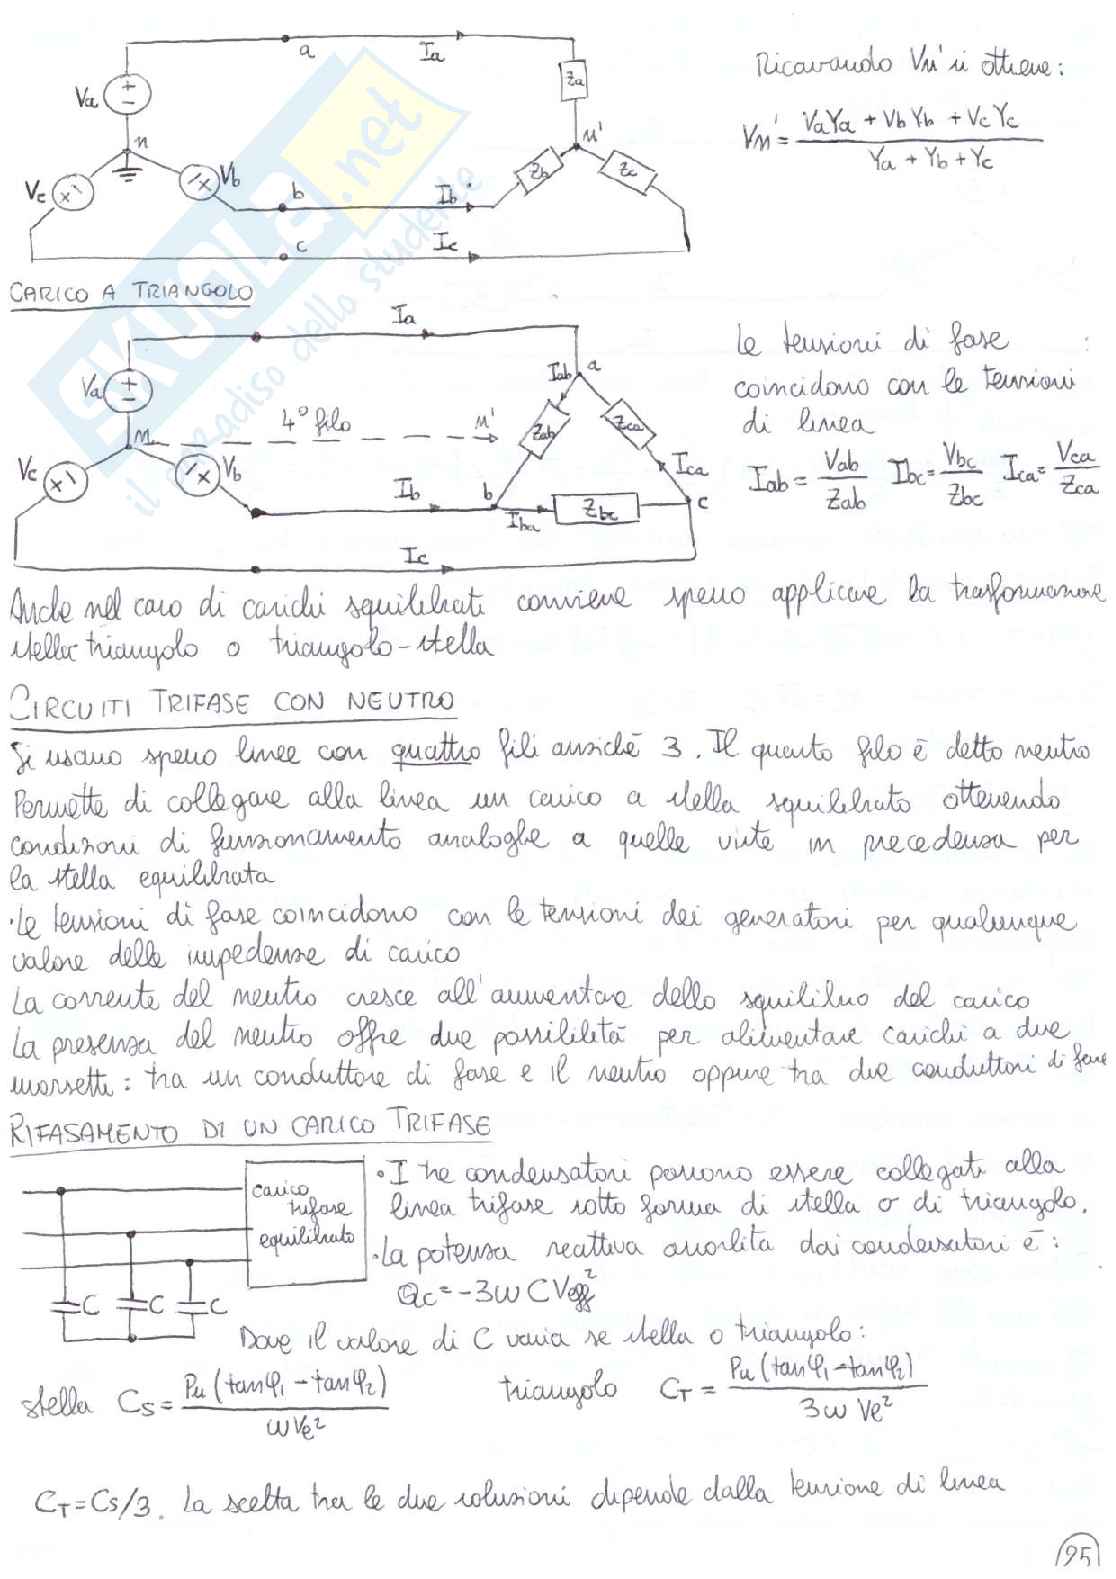 a
Ia
Za
Va
n
n'
Vc
Vb
b
Ib
Zb
Zc
c
Ic
Ricavando Vn' si ottiene:
Vn' = (VaYa + VbYb + VcYc) / (Ya + Yb + Yc)
SKUOLA.net
il paradiso dello studente
CARICO A TRIANGOLO
Ia
Va
n
4° filo
n'
Iab
a
Zab
Zca
Ica
Vc
Vb
Ib
b
Iba
Zbc
c
Ic
Le tensioni di fase
coincidono con le tensioni
di linea
Iab = Vab/Zab Ibc = Vbc/Zbc Ica = Vca/Zca
Anche nel caso di carichi squilibrati conviene spesso applicare la trasformazione
stella triangolo o triangolo-stella
CIRCUITI TRIFASE CON NEUTRO
Si usano spesso linee con quattro fili anziché 3. Il quarto filo è detto neutro
Permette di collegare alla linea un carico a stella squilibrato ottenendo
condizioni di funzionamento analoghe a quelle viste in precedenza per
la stella equilibrata
·Le tensioni di fase coincidono con le tensioni dei generatori per qualunque
valore delle impedenze di carico
La corrente del neutro cresce all'aumentare dello squilibrio del carico
La presenza del neutro offre due possibilità per alimentare carichi a due
morsetti: tra un conduttore di fase e il neutro oppure tra due conduttori di fase
RIFASAMENTO DI UN CARICO TRIFASE
carico
trifase
equilibrato
C C C
• I tre condensatori possono essere collegati alla
linea trifase sotto forma di stella o di triangolo.
·La potenza reattiva assorbita dai condensatori è:
Qc = -3ωCVeff²
Dove il valore di C varia se stella o triangolo:
stella Cs = Pu(tanφ1 - tanφ2) / ωVe² triangolo CT = Pu(tanφ1 - tanφ2) / 3ωVe²
CT = Cs/3. La scelta tra le due soluzioni dipende dalla tensione di linea
95